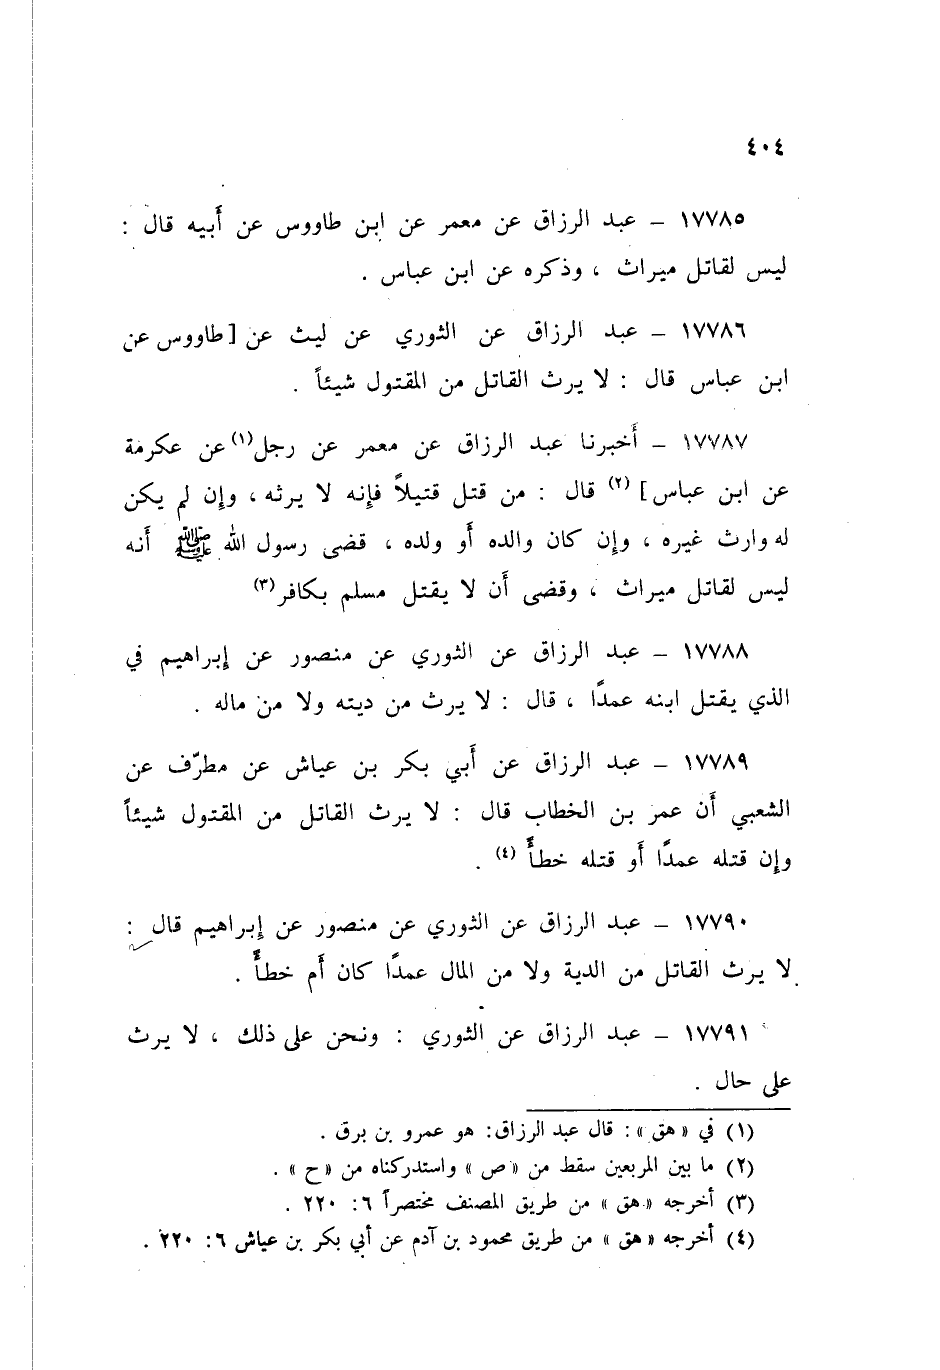 ٤٠٤
١٧٧٨٥ – عبد الرزاق عن معمر عن ابن طاووس عن أَبيه قال :
ليس لقاتل ميراث ، وذكره عن ابن عباس .
١٧٧٨٦ – عبد الرزاق عن الثوري عن ليث عن [ طاووس عن
ابن عباس قال : لا يرث القاتل من المقتول شيئاً .
١٧٧٨٧ – أَخبرنا عبد الرزاق عن معمر عن رجل(١) عن عكرمة
عن ابن عباس ] (٢) قال : من قتل قتيلاً فإنه لا يرثه ، وإن لم يكن
له وارث غيره ، وإن كان والده أَو ولده ، قضى رسول الله ﷺ أَنه
ليس لقاتل ميراث ، وقضى أَن لا يقتل مسلم بكافر(٣)
١٧٧٨٨ – عبد الرزاق عن الثوري عن منصور عن إبراهيم في
الذي يقتل ابنه عمدًا ، قال : لا يرث من ديته ولا من ماله .
١٧٧٨٩ – عبد الرزاق عن أَبي بكر بن عياش عن مطرّف عن
الشعبي أَن عمر بن الخطاب قال : لا يرث القاتل من المقتول شيئاً
وإن قتله عمدًا أَو قتله خطأً (٤) .
١٧٧٩٠ – عبد الرزاق عن الثوري عن منصور عن إبراهيم قال :
لا يرث القاتل من الدية ولا من المال عمدًا كان أَم خطأً .
١٧٧٩١ – عبد الرزاق عن الثوري : ونحن على ذلك ، لا يرث
على حال .
(١) في « هق » : قال عبد الرزاق: هو عمرو بن برق .
(٢) ما بين المربعين سقط من « ص » واستدركناه من « ح » .
(٣) أخرجه « هق » من طريق المصنف مختصراً ٦: ٢٢٠ .
(٤) أخرجه « هق » من طريق محمود بن آدم عن أبي بكر بن عياش ٦: ٢٢٠ .